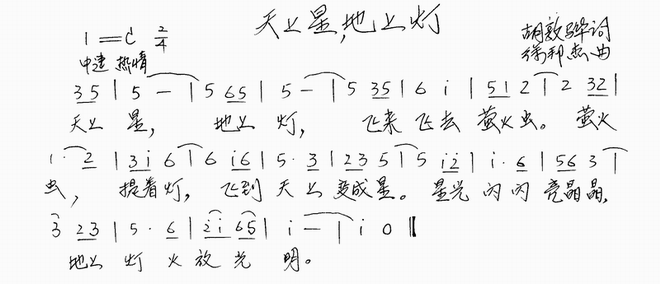 天上星,地上灯
1=C 2/4 胡敦骅词
中速 热情 徐邦杰曲
35 | 5 — | 5 65 | 5 — | 5 35 | 6 i | 51 2 | 2 32 |
天上 星, 地上 灯, 飞来 飞去 萤火虫。 萤火
1· 2 | 3i 6 | 6 i6 | 5· 3 | 23 5 | 5 i2 | i· 6 | 56 3 |
虫, 提着灯, 飞到 天上 变成星。 星光 闪闪 亮晶晶,
3 23 | 5· 6 | 2i 65 | i — | i 0 ‖
地上 灯 火 放 光 明。